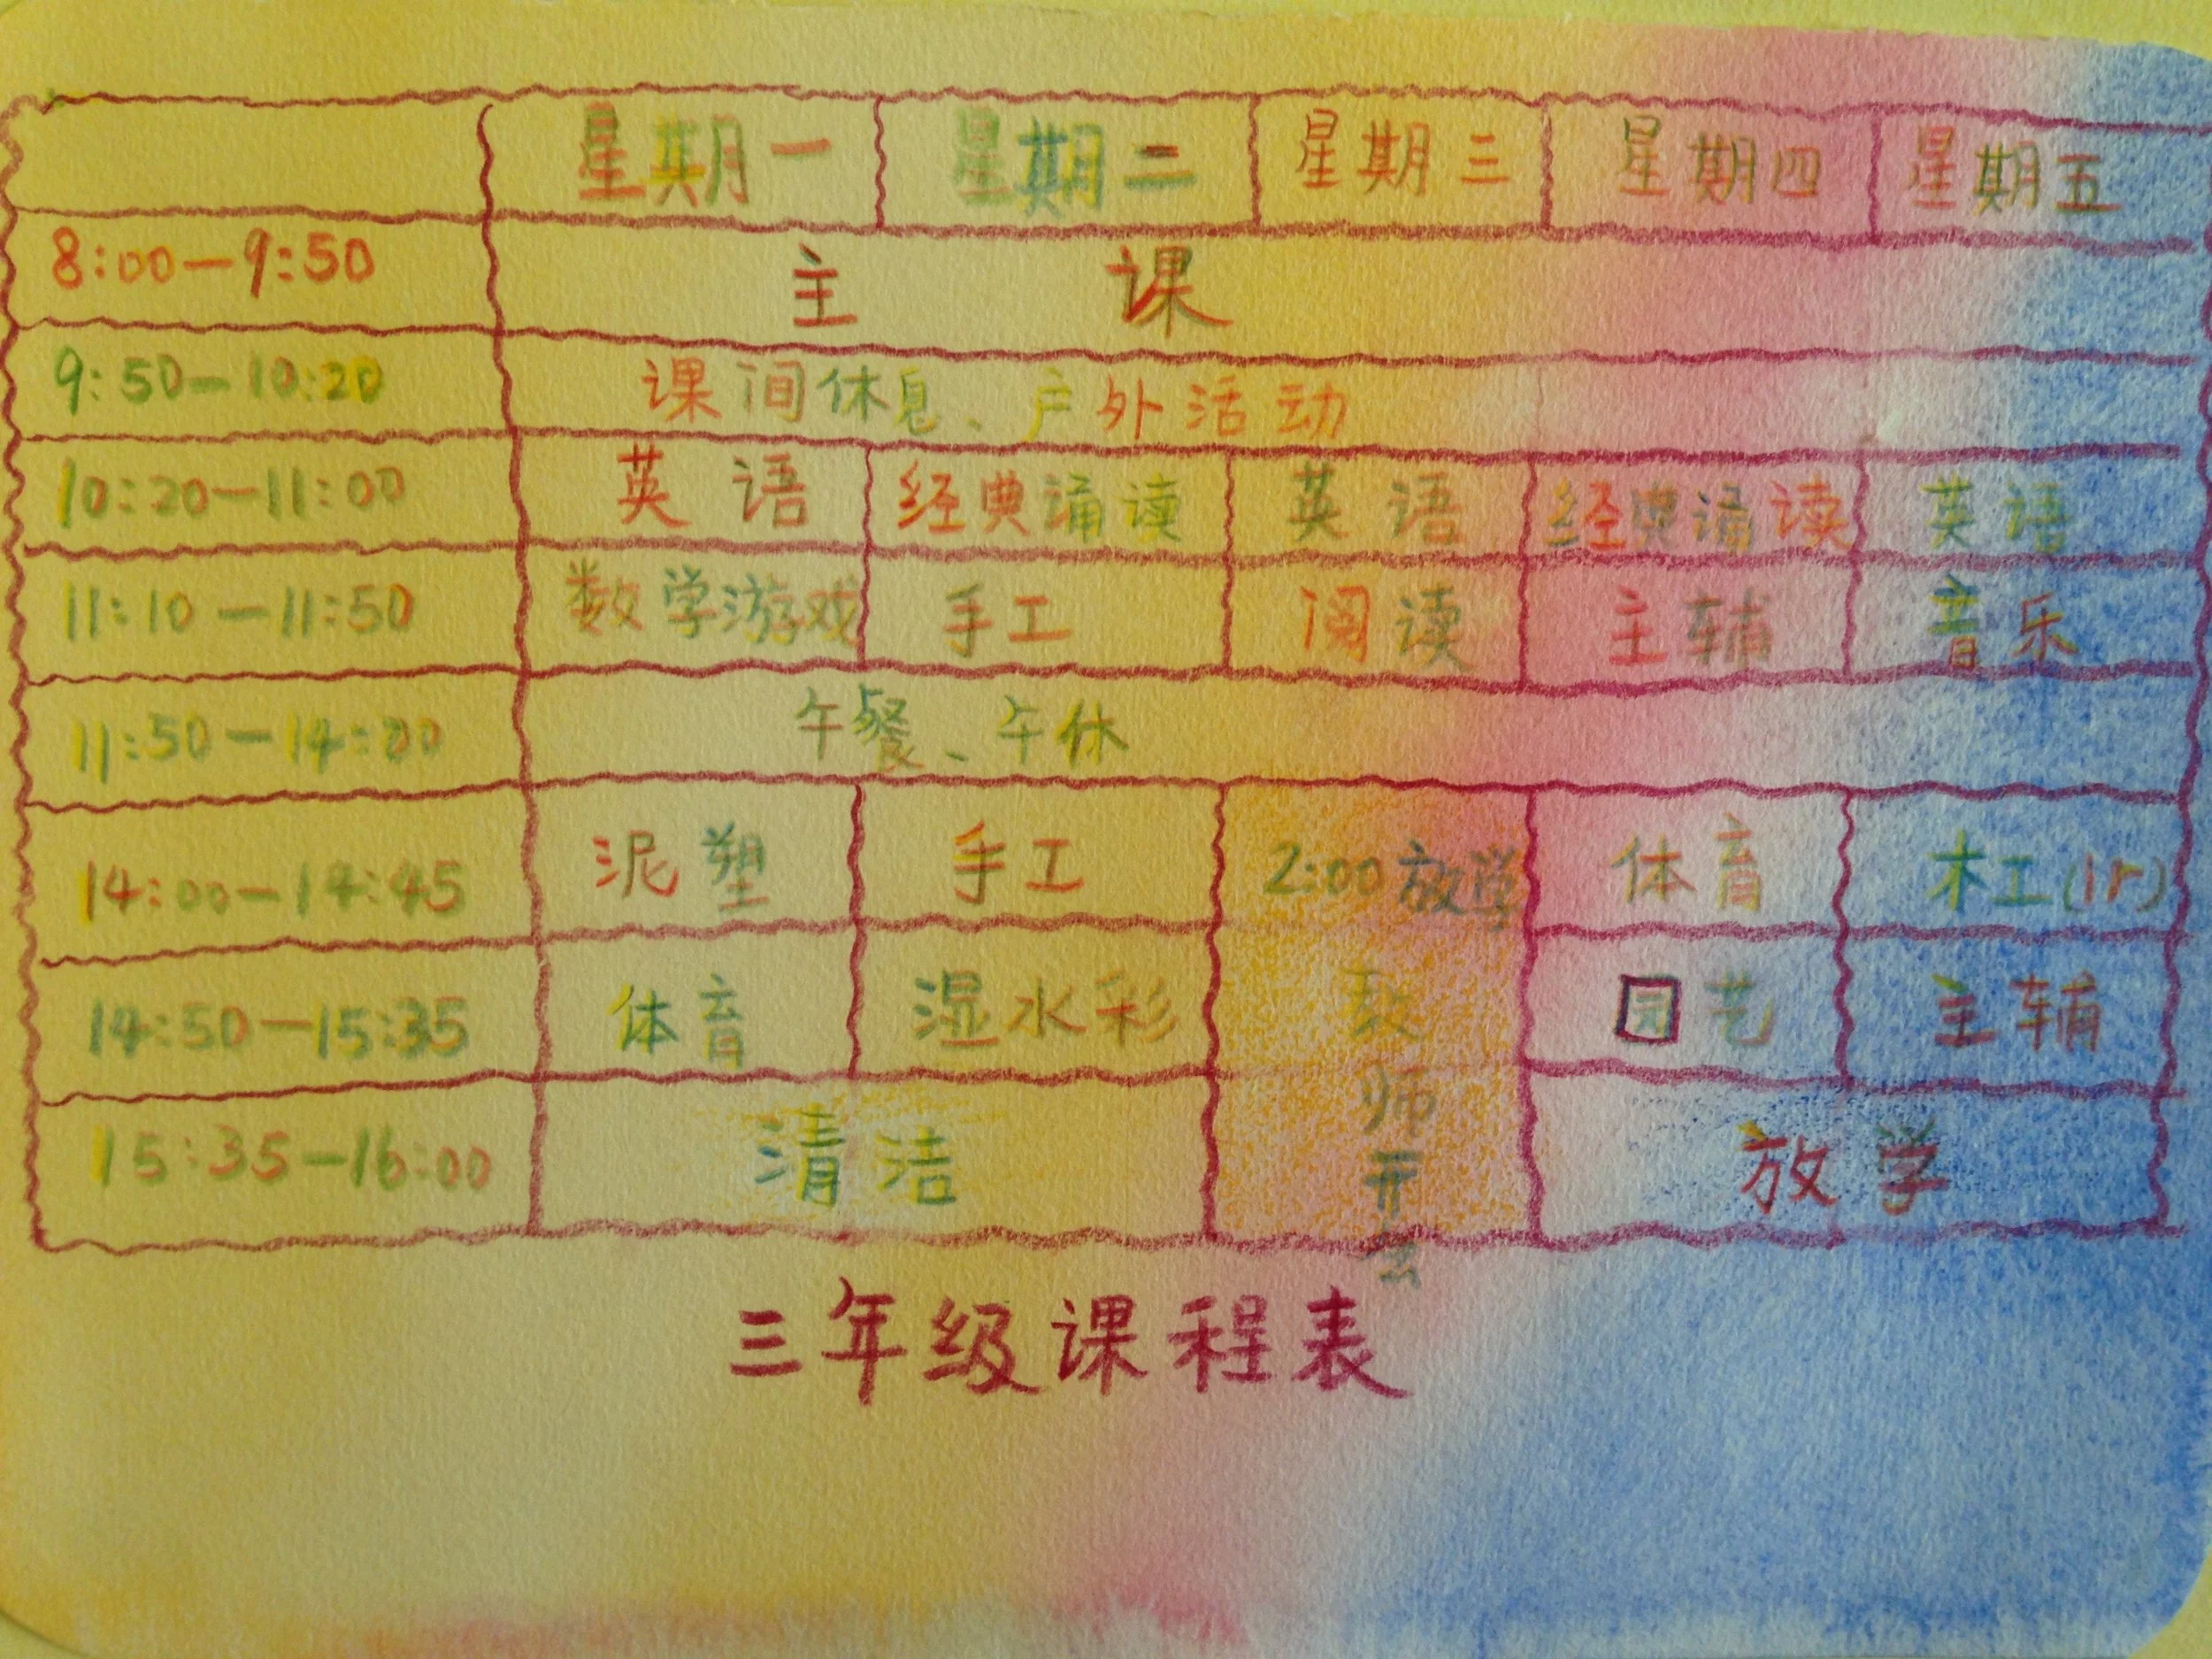 星期一 星期二 星期三 星期四 星期五
8:00—9:50 主 课
9:50—10:20 课间休息、户外活动
10:20—11:00 英语 经典诵读 英语 经典诵读 英语
11:10—11:50 数学游戏 手工 阅读 主辅 音乐
11:50—14:00 午餐、午休
14:00—14:45 泥塑 手工 2:00放学 体育 木工
14:50—15:35 体育 湿水彩 教 园艺 主辅
师
15:35—16:00 清洁 开 放学
会
三年级课程表